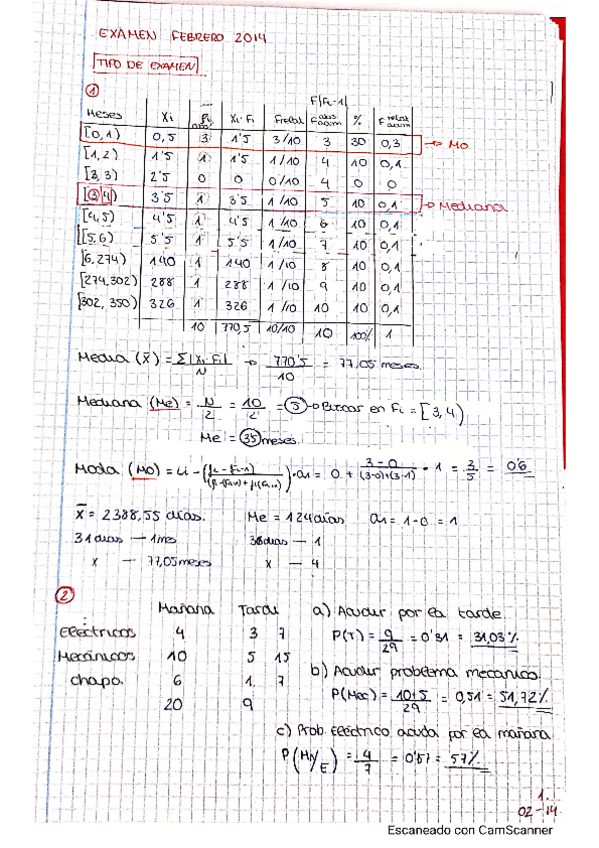 EXAMEN FEBRERO 2014
TIPO DE EXAMEN
1
Meses Xi fi Xi·Fi Frelat F abs acum % F relat acum
[0,1) 0,5 3 1'5 3/10 3 30 0,3 → Mo
[1,2) 1'5 1 1'5 1/10 4 10 0,1
[3,3) 2'5 0 0 0/10 4 0 0
[3,4) 3'5 1 3'5 1/10 5 10 0,1 → Mediana
[4,5) 4'5 1 4'5 1/10 6 10 0,1
[5,6) 5'5 1 5'5 1/10 7 10 0,1
[6,274) 140 1 140 1/10 8 10 0,1
[274,302) 288 1 288 1/10 9 10 0,1
[302, 350) 326 1 326 1/10 10 10 0,1
10 770,5 10/10 10 100% 1
Media (x̄) = Σ|Xi·Fi|/N → 770'5/10 = 77,05 meses.
Mediana (Me) = N/2 = 10/2 = 5 → Buscar en Fi = [3,4)
Me = 35 meses.
Moda (Mo) = Li - ·a1 = 0 + 3-0/(3-0)+(3-1) · 1 = 3/5 = 0'6
x̄ = 2388,55 días. Me = 124 días a1 = 1-0 = 1
31 días — 1 mes — 1
x — 77,05 meses x — 4
2
Mañana Tarde a) Acudir por la tarde.
Eléctricos 4 3 7 P(T) = 9/29 = 0'31 = 31,03%
Mecánicos 10 5 15 b) Acudir problema mecanico.
chapa 6 1 7 P(Mec) = 10+5/29 = 0,51 = 51,72%
20 9
c) Prob. eléctrico acuda por la mañana
P(M/E) = 4/7 = 0'57 = 57%
1.
02-14
Escaneado con CamScanner